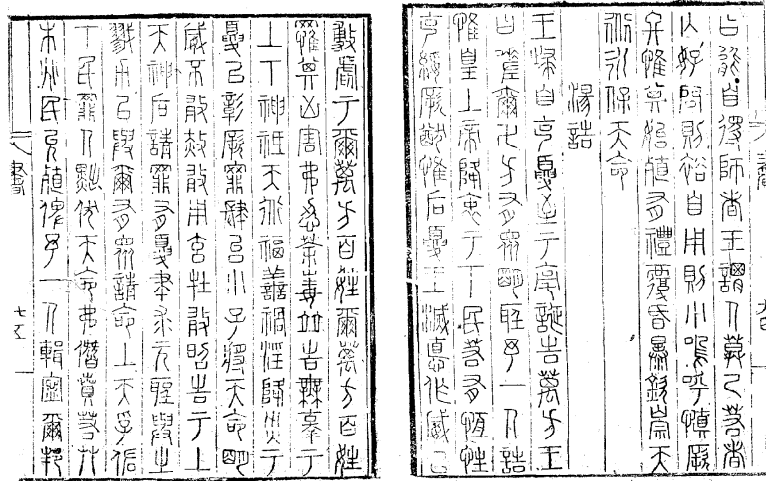 曰能自得師者王謂人莫己若者
亡好問則裕自用則小嗚呼慎厥
終惟其始殖有禮覆昏暴欽崇天
道永保天命
湯誥
王歸自克夏至于亳誕告萬方王
曰嗟爾萬方有衆明聽予一人誥
惟皇上帝降衷于下民若有恆性
克綏厥猷惟后夏王滅德作威以
敷虐于爾萬方百姓爾萬方百姓
罹其凶害弗忍荼毒並告無辜于
上下神祇天道福善禍淫降災于
夏以彰厥罪肆台小子將天命明
威不敢赦敢用玄牡敢昭告于上
天神后請罪有夏聿求元聖與之
戮力以與爾有衆請命上天孚佑
下民罪人黜伏天命弗僭賁若草
木兆民允殖俾予一人輯寧爾邦
書